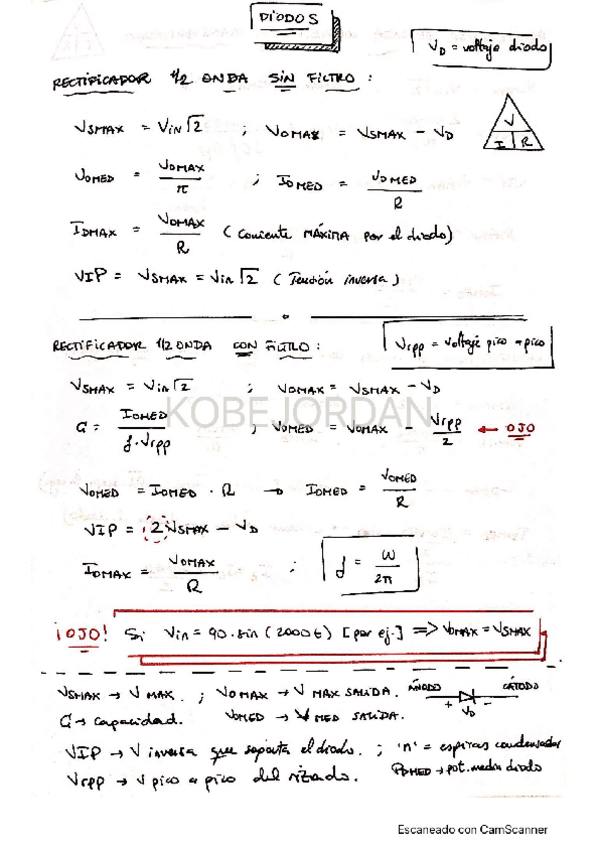 DIODOS
VD = voltaje diodo
RECTIFICADOR 1/2 ONDA SIN FILTRO :
VSMAX = Vin√2 ; VOMAX = VSMAX - VD
V
I R
VOMED = VOMAX / π ; IOMED = VOMED / R
IDMAX = VOMAX / R ( Corriente MÁXIMA por el diodo)
VIP = VSMAX = Vin√2 ( Tensión inversa )
RECTIFICADOR 1/2 ONDA CON FILTRO :
Vrpp = voltaje pico a pico
VSMAX = Vin√2 ; VOMAX = VSMAX - VD
KOBE JORDAN
C = IOMED / f·Vrpp ; VOMED = VOMAX - Vrpp / 2 ← OJO
VOMED = IOMED · R → IOMED = VOMED / R
VIP = 2VSMAX - VD
IOMAX = VOMAX / R ; f = ω / 2π
¡OJO! Si Vin = 90·sin (2000t) [por ej.] => VOMAX = VSMAX
VSMAX → V MAX. ; VOMAX → V MAX SALIDA. ÁNODO CÁTODO
+ VD -
C → capacidad. VOMED → V MED SALIDA.
VIP → V inversa que soporta el diodo. ; 'n' = espiras condensador
Vrpp → V pico a pico del rizado. PDMED → pot. media diodo
Escaneado con CamScanner